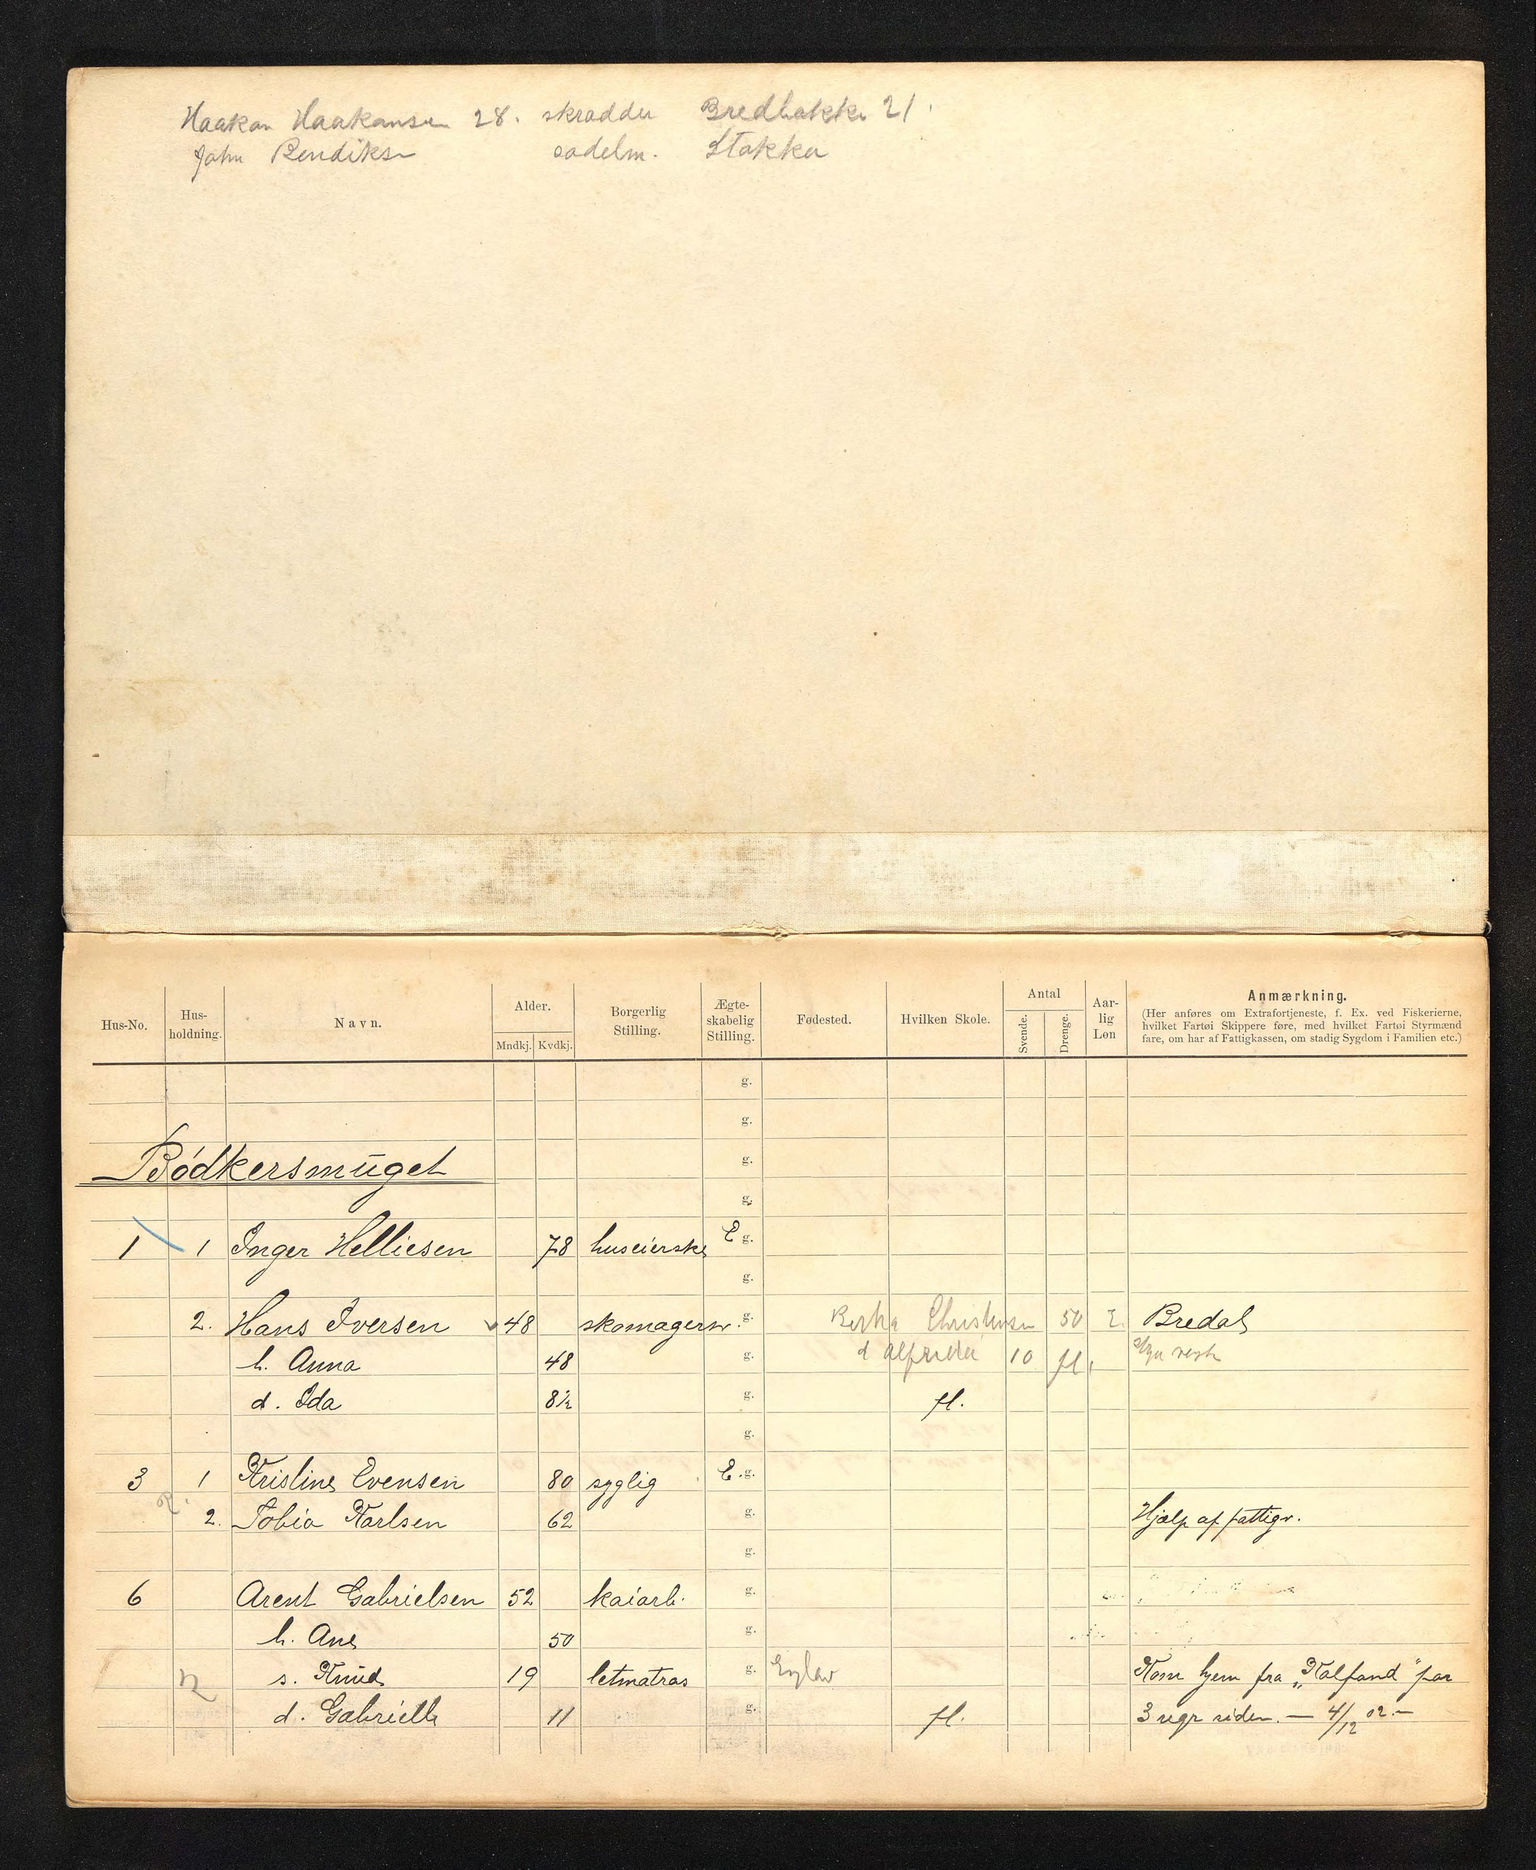 Haakon Haakonsen 28. skrædder Bredbakken 21.
John Bendiksen sadelm. Stokka
Hus-No. Hus-holdning. Navn. Alder. Mndkj. Kvdkj. Borgerlig Stilling. Ægte-skabelig Stilling. Fødested. Hvilken Skole. Antal Svende. Drenge. Aar-lig Løn Anmærkning.
(Her anføres om Extrafortjeneste, f. Ex. ved Fiskerierne,
hvilket Fartøi Skippere føre, med hvilket Fartøi Styrmænd
fare, om har af Fattigkassen, om stadig Sygdom i Familien etc.)
g.
g.
Bødkersmuget g.
g.
1 1 Inger Helliesen 78 huseierske E g.
g.
2. Hans Iversen 48 skomagersv. g. Christensen 50 E. Bredal
h. Anna 48 g. d Alfrida 10 fl.
d. Ida 8½ g. fl.
g.
3 1 Kristine Evensen 80 syglig E. g.
2. Tobia Karlsen 62 g. Hjælp af fattigv.
g.
6 Arent Gabrielsen 52 kaiarb. g.
h. Ane 50 g.
s. Knud 19 letmatros g. Kom hjem fra "Kalfond" par
d. Gabrielle 11 g. fl. 3 uger siden. — 4/12 02.—